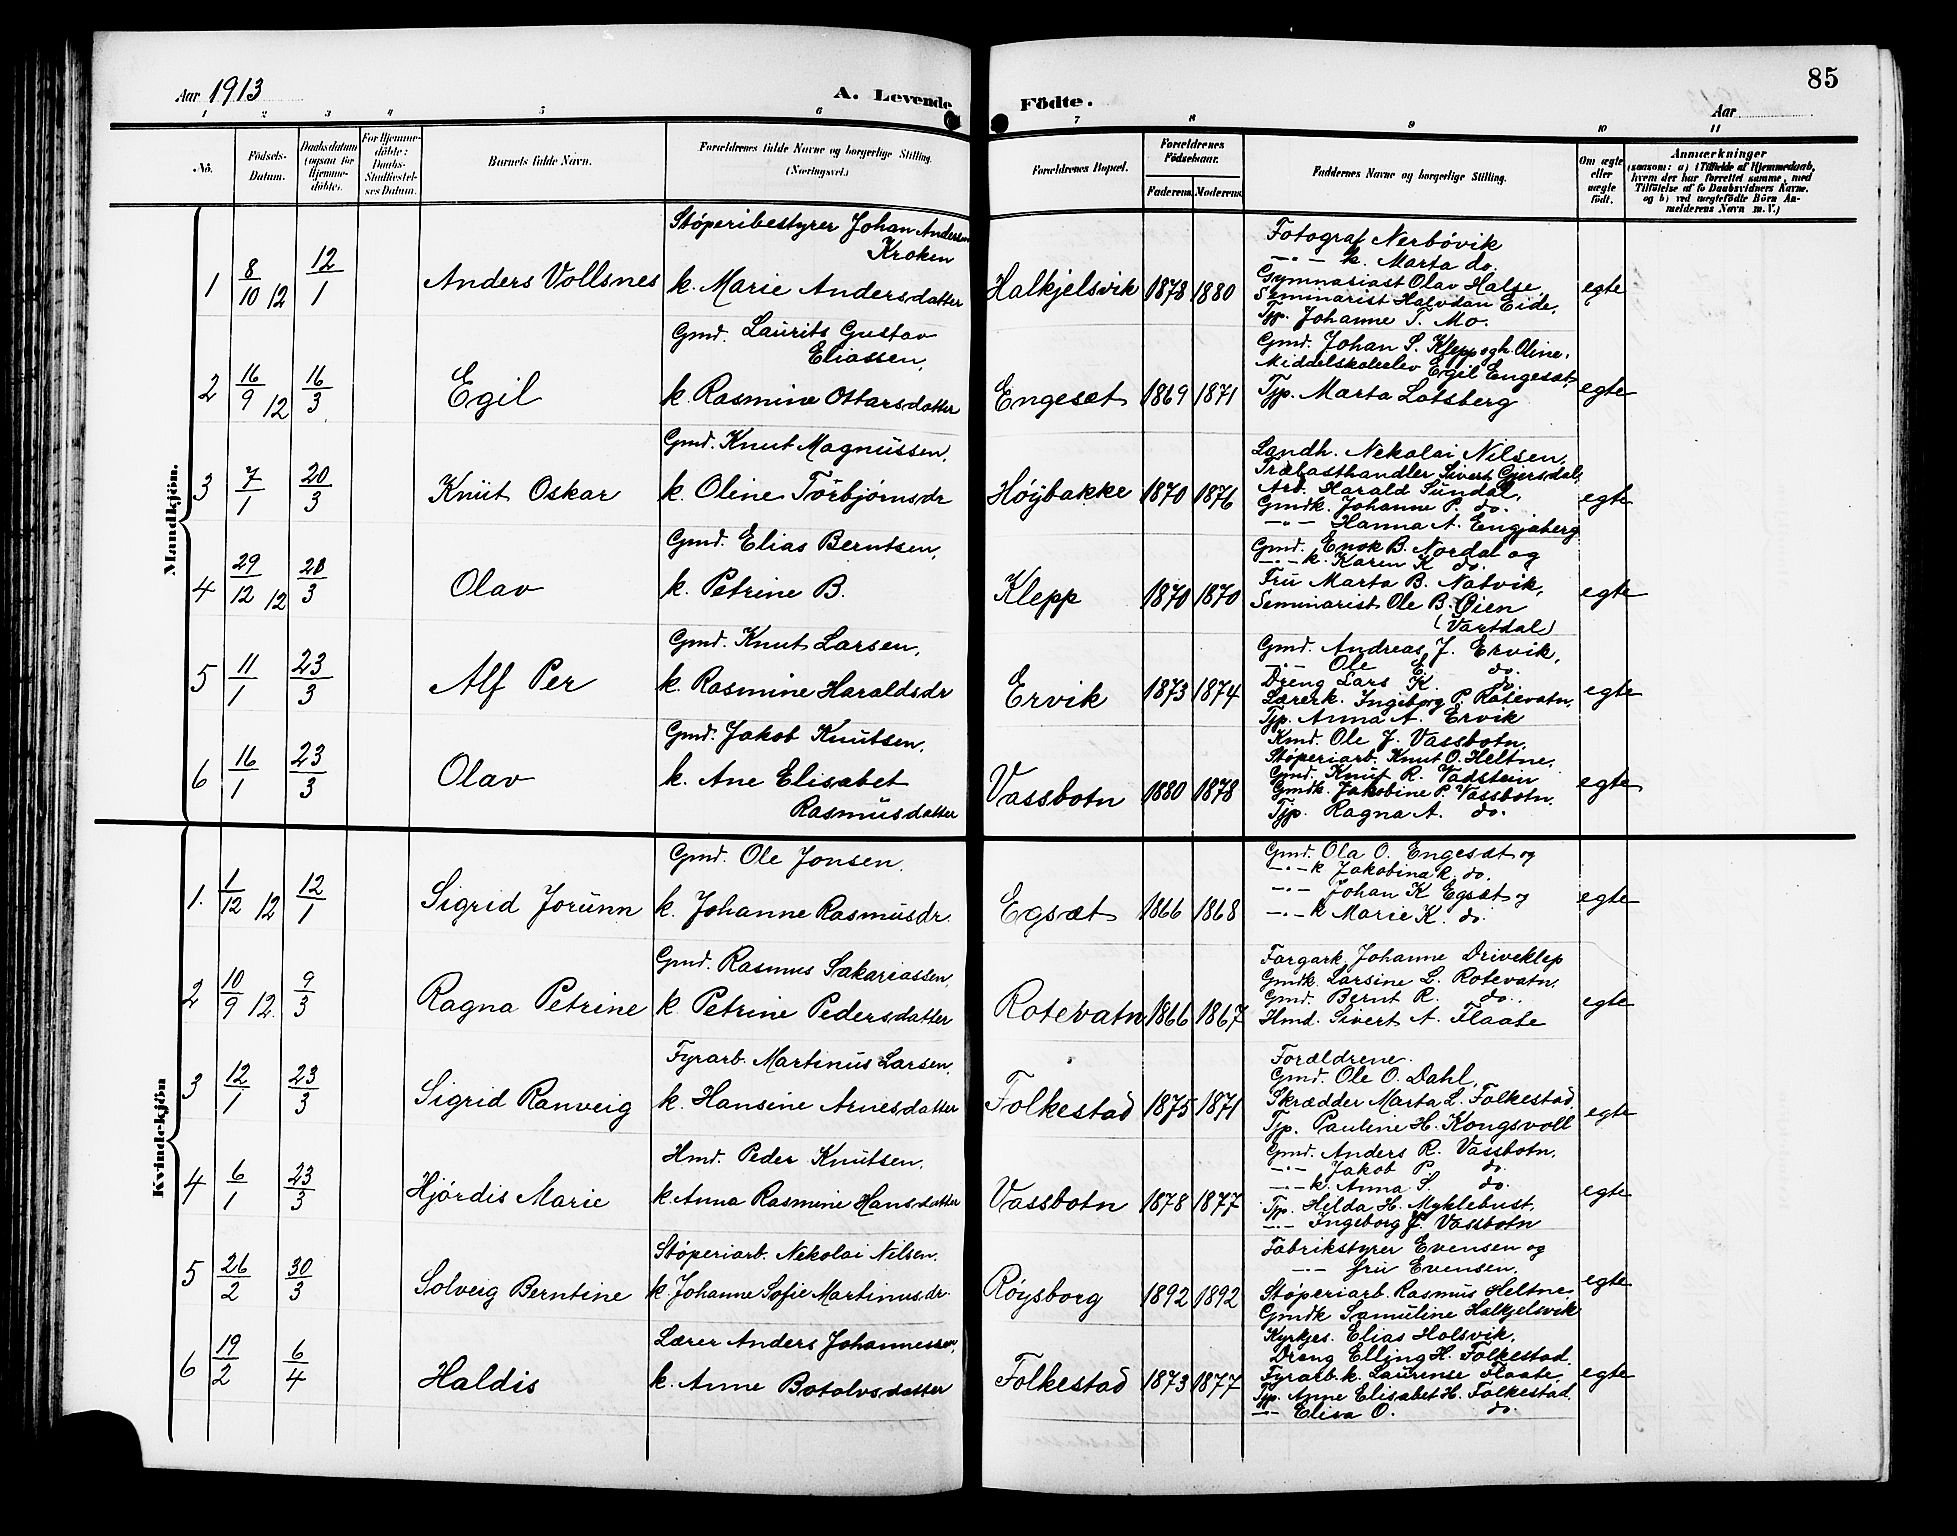 85
Aar 1913
A. Levende Födte.
Aar
1 2 3 4 5 6 7 8 9 10 11
No.
Födsels-
Datum.
Daabsdatum
(ogsaa for
Hjemme-
döbte).
For Hjemme-
döbte:
Daabs-
Stadfæstel-
ses Datum.
Barnets fulde Navn.
Forældrenes fulde Navne og borgerlige Stilling.
(Næringsvei.)
Forældrenes Bopæl.
Forældrenes
Födselsaar.
Faderens. Moderens.
Faddernes Navne og borgerlige Stilling.
Om ægte
eller
uægte
födt.
Anmærkninger
(saasom: a) i Tilfælde af Hjemmedaab,
hvem der har forrettet samme, med
Tilföielse af to Daabsvidners Navne.
og b) ved uægtefödte Börn An-
melderens Navn m. V.)
Mandkjön.
1 8/10 12 12/1 Anders Vollsnes
Støperibestyrer Johan Andersen
Kroken
k. Marie Andersdatter
Halkjelsvik 1878 1880
Fotograf Nerbövik
—"— k. Marta do.
Gymnasiast Olav Halse
Seminarist Halvdan Eide,
Tjp. Johanne T. Mo.
egte
2 16/9 12 16/3 Egil
Gmd. Laurits Gustav
Eliassen,
k. Rasmine Ottarsdatter
Engesæt 1869 1871
Gmd. Johan S. Klepp og h. Oline,
Middelskoleelev Egil Engesæt,
Tjp. Marta Lotsberg
egte
3 7/1 20/3 Knut Oskar
Gmd. Knut Magnussen,
k. Oline Torbjørnsdr
Høybakke 1870 1876
Landh. Nekolai Nilsen,
Træbasthandler Sivert Gjersdal,
Arb. Harald Sundal,
Gmdk. Johanne P. do.
—"— Hanna A. Engjaberg
egte
4 29/12 12 20/3 Olav
Gmd. Elias Berntsen,
k. Petrine B.
Klepp 1870 1870
Gmd. Enok B. Nordal og
—"— k. Karen K do.
Fru Marta B. Natvik,
Seminarist Ole B. Øien
(Vartdal)
egte
5 11/1 23/3 Alf Per
Gmd. Knut Larsen,
k. Rasmine Haraldsdr
Ervik 1873 1874
Gmd. Andreas J. Ervik,
—"— Ole E. do.
Dreng Lars K. do.
Lærerk. Ingeborg P. Rotevatn,
Tjp. Anna A. Ervik
egte
6 16/1 23/3 Olav
Gmd. Jakob Knutsen,
k. Ane Elisabet
Rasmusdatter
Vassbotn 1880 1878
Kmd. Ole J. Vassbotn,
Støperiarb. Knut O. Heltne,
Gmd. Knut R. Vadstein
Gmdk. Jakobine P. Vassbotn,
Tjp. Ragna A. do.
egte
Kvindekjön
1. 1/12 12 12/1 Sigrid Jorunn
Gmd. Ole Jonsen.
k. Johanne Rasmusdr.
Egsæt 1866 1868
Gmd. Ola O. Engesæt og
—"— k Jakobina R. do.
—"— Johan K Egsæt og
—"— k Marie K. do.
egte
2 10/9 12. 9/3 Ragna Petrine
Gmd. Rasmus Sakariassen,
k. Petrine Pedersdatter
Rotevatn 1866 1867
Fargark. Johanne Driveklep
Gmdk. Larsine L. Rotevatn,
Gmd. Bernt R. do.
Hmd. Sivert A. Flaate
egte
3 12/1 23/3 Sigrid Ranveig
Fyrarb. Martinus Larsen,
k. Hansine Arnesdatter
Folkestad 1875 1871
Forældrene.
Gmd. Ole O. Dahl,
Skrædder Marta L. Folkestad,
Tjp. Pauline H. Kongsvoll
egte
4 6/1 23/3 Hjördis Marie
Hmd. Peder Knutsen,
k. Anna Rasmine Hansdatter
Vassbotn 1878 1877
Gmd. Anders R. Vassbotn,
—"— Jakob P. do.
—"— k. Anna S. do.
Tjp. Hilda H. Myklebust,
—"— Ingeborg J. Vassbotn
egte
5 26/2 30/3 Solveig Berntine
Støperiarb. Nekolai Nilsen.
k. Johanne Sofie Martinusdr.
Röysborg 1892 1892
Fabrikstyrer Evensen og
—"— fru Evensen,
Støperiarb. Rasmus Heltne,
Gmdk Samuline Halkjelsvik
egte
6 19/2 6/4 Haldis
Lærer Anders Johannessen,
k. Anne Botolvsdatter
Folkestad 1873 1877
Kyrkjes. Elias Holsvik,
Dreng Elling H. Folkestad.
Fyrarb. k. Laurense Flaate,
Tjp. Anne Elisabet H. Folkestad,
—"— Elisa O. do.
egte